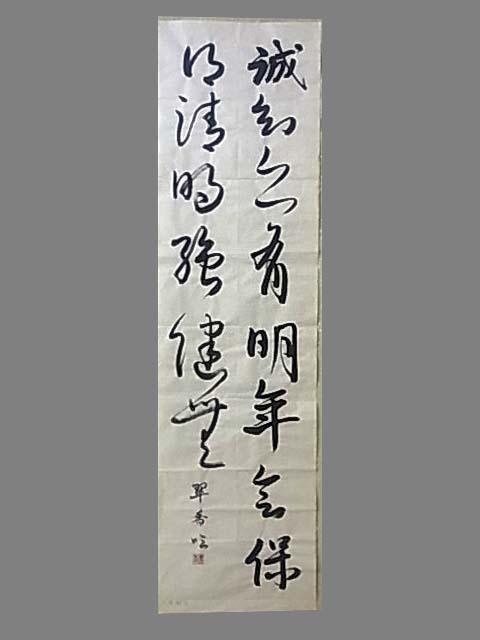 誠知亦有明年会保
得清明強健無
翠香